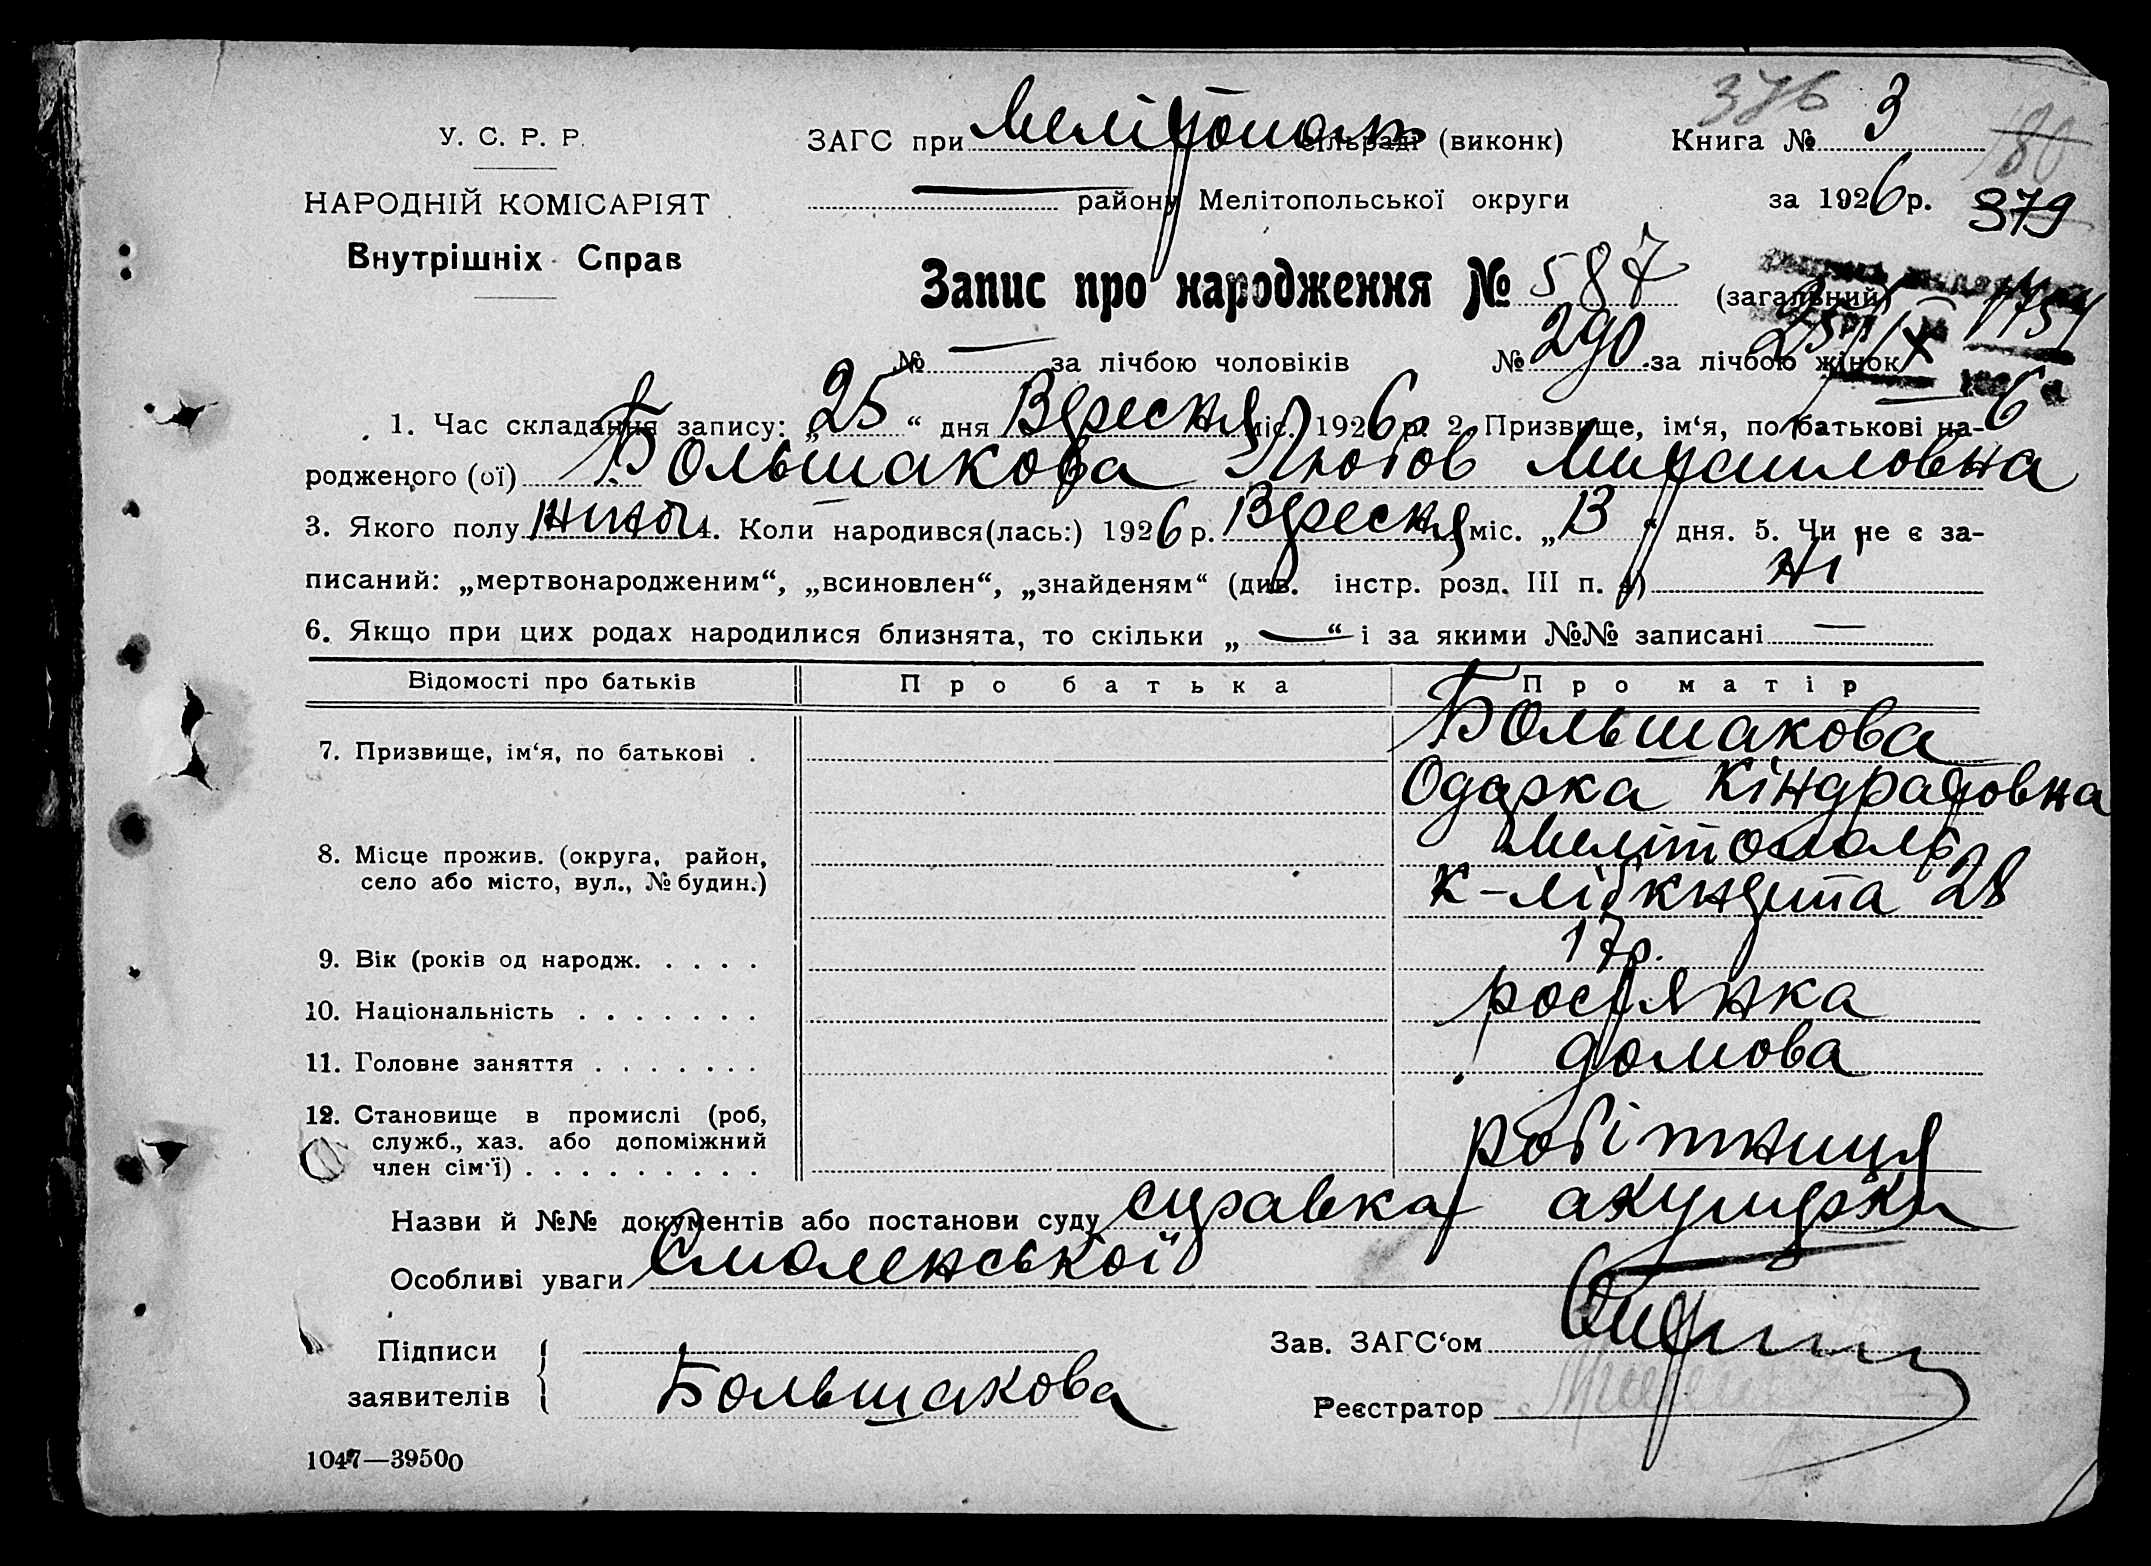 376
У. С. Р. Р. ЗАГС при Мелітопол. сільраді (виконк) Книга № 3
180
НАРОДНІЙ КОМІСАРІЯТ району Мелітопольської округи за 1926 р. 379
Внутрішніх Справ
Запис про народження № 587 (загальний)
№ — за лічбою чоловіків № 290 за лічбою жінок
1. Час складання запису: „25“ дня Вересня міс. 1926 р. 2. Призвище, ім‘я, по батькові на-
родженого (ої) Большакова Любов Михаиловна
3. Якого полу жиноч 4. Коли народився(лась:) 1926 р. Вересня міс. „13“ дня. 5. Чи не є за-
писаний: „мертвонародженим“, „всиновлен“, „знайденям“ (див. інстр. розд. III п. 4) Ні
6. Якщо при цих родах народилися близнята, то скільки „—“ і за якими №№ записані —
Відомості про батьків Про батька Про матір
7. Призвище, ім‘я, по батькові . Большакова
Одарка Кіндратовна
8. Місце прожив. (округа, район, Мелітополь
село або місто, вул., № будин.) К-Лібкнехта 28
9. Вік (років од народж. . . . . 17 р.
10. Національність . . . . . . . росіянка
11. Головне заняття . . . . . . . домова
12. Становище в промислі (роб, робітниця
служб., хаз. або допоміжний
член сім‘ї) . . . . . . . . .
Назви й №№ документів або постанови суду справка акушерки
Особливі уваги Смоленської
Підписи Зав. ЗАГС‘ом
заявителів Большакова Реєстратор
1047—39500